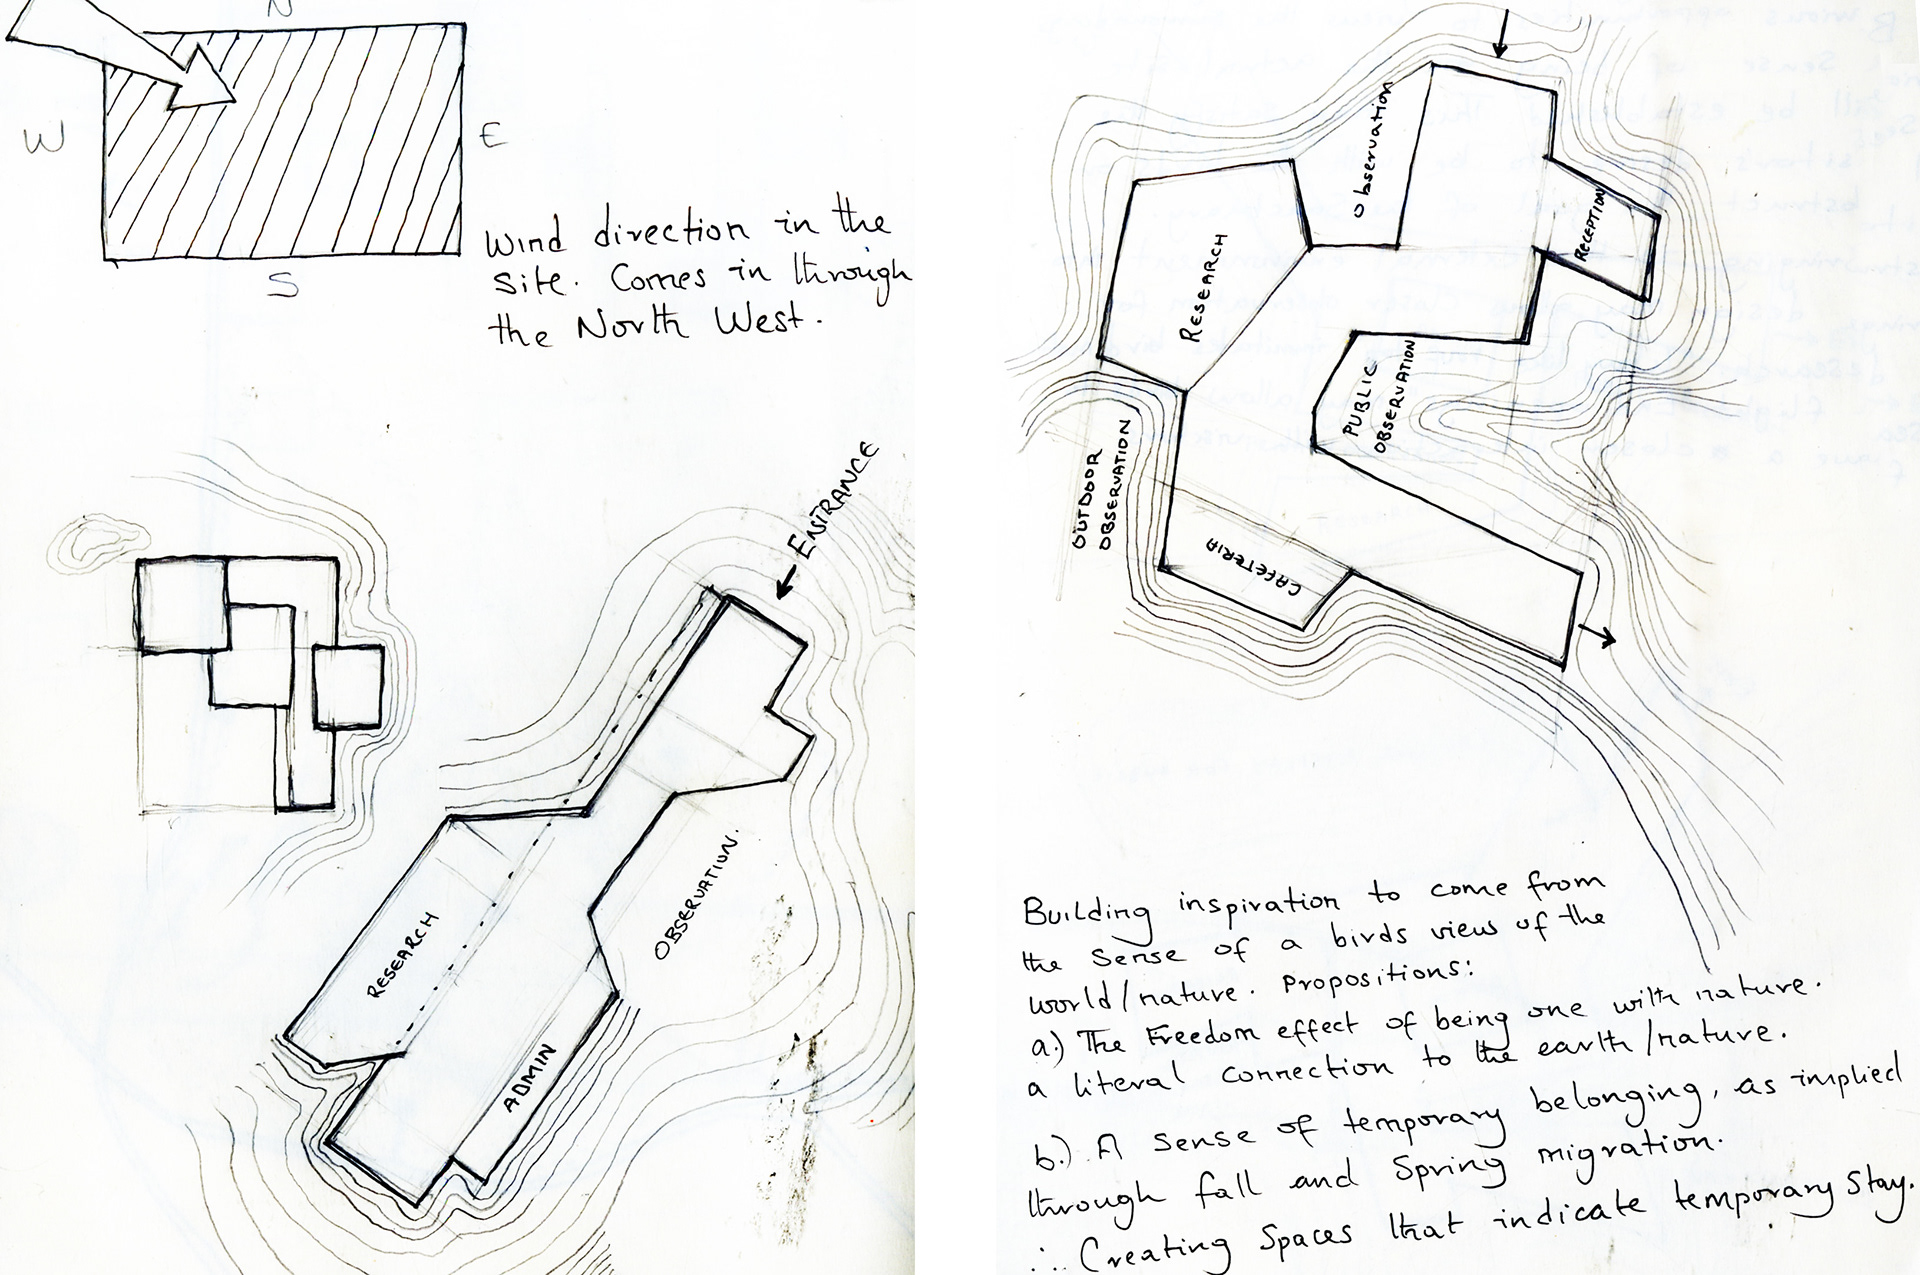 N
W
E
S
Wind direction in the
site. Comes in through
the North West.
ENTRANCE
RESEARCH
OBSERVATION.
ADMIN
Observation
RESEARCH
RECEPTION
PUBLIC
OBSERVATION
OUTDOOR
OBSERVATION
CAFETERIA
Building inspiration to come from
the sense of a birds view of the
world/nature. Propositions:
a.) The Freedom effect of being one with nature.
a literal connection to the earth/nature.
b.) A sense of temporary belonging, as implied
through fall and Spring migration.
∴ Creating Spaces that indicate temporary stay.